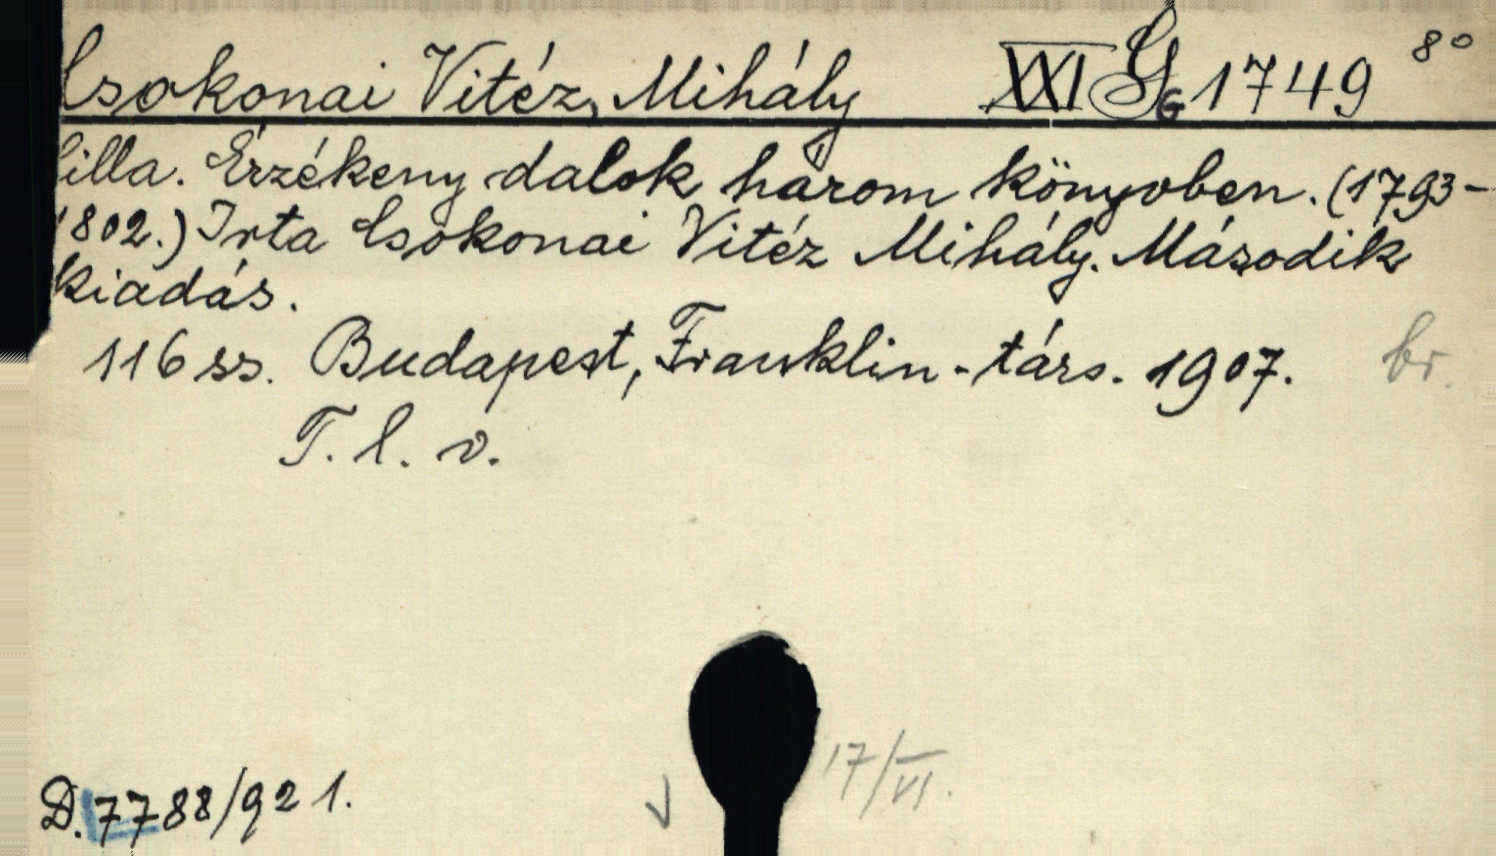 Csokonai Vitéz, Mihály XXI Gg 1749 8°
Lilla. Érzékeny dalok három könyvben. (1793-
1802.) Irta Csokonai Vitéz Mihály. Második
kiadás.
116 ss. Budapest, Franklin-társ. 1907. br.
T. l. v.
17/VI.
D. 7788/921.